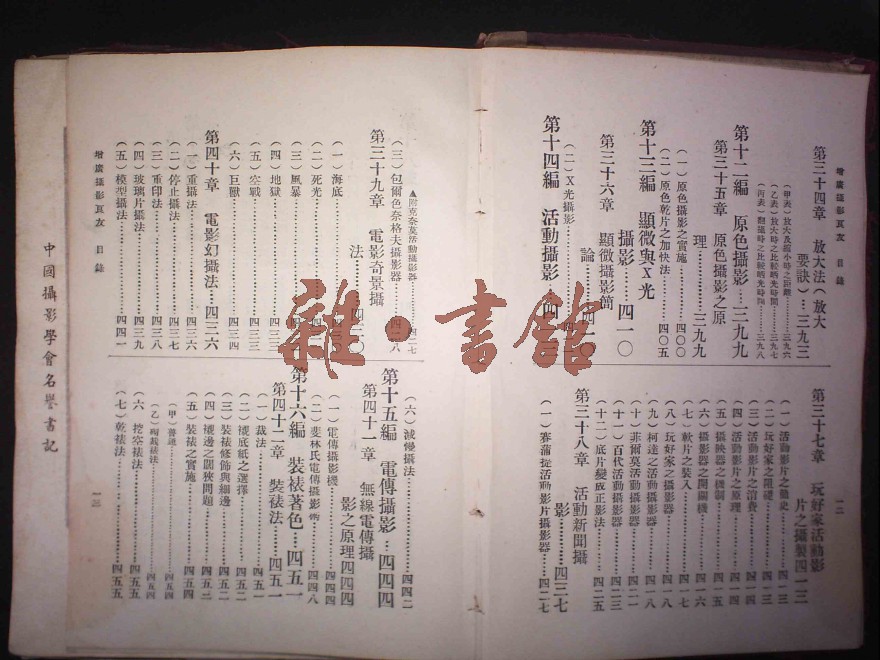 增廣攝影良友 目錄 一二
第三十四章 放大法(放大
要訣)…三九三
(甲表)放大及縮小時之距離……三九六
(乙表)放大時之比較晒光時間……三九七
(丙表)翻攝時之比較晒光時間……三九八
第十二編 原色攝影…三九九
第三十五章 原色攝影之原
理……三九九
(一)原色攝影之實施……四〇〇
(二)原色乾片之加快法……四〇五
第十三編 顯微與X光
攝影……四一〇
第三十六章 顯微攝影簡
論……四一〇
(二)X光攝影……四一
第十四編 活動攝影…四一
第三十七章 玩好家活動影
片之攝製四一三
(一)活動影片之發史……四一三
(二)玩好家之阻礙……四一三
(三)活動影片之消費……四一四
(四)活動影片之原理……四一四
(五)攝映器之機制……四一五
(六)攝影器之開關機……四一六
(七)軟片之裝入……四一七
(八)玩好家之攝影器……四一七
(九)柯達之活動攝影器……四一八
(十)菲爾莫活動攝影器……四一八
(十一)百代活動攝影器……四二三
(十二)底片變成正影法……四二五
第三十八章 活動新聞攝
影……四二七
(一)賽蒲從活動影片攝影器……四二七
▲附克奈莫活動攝影器……四二七
(三)包爾色奈格夫攝影器……四二八
第三十九章 電影奇景攝
法……四三〇
(一)海底……四三〇
(二)死光……四三
(三)風暴……四三
(四)地獄……四三三
(五)空戰……四三三
(六)巨獸……四三四
第四十章 電影幻攝法…四三六
(一)重攝法……四三六
(二)停止攝法……四三七
(三)重印法……四三八
(四)玻璃片攝法……四三九
(五)模型攝法……四四一
(六)減慢攝法……四四二
第十五編 電傳攝影…四四四
第四十一章 無線電傳攝
影之原理四四四
(一)電傳攝影機……四四四
(二)斐林氏電傳攝影術……四四八
第十六編 裝裱著色…四五一
第四十二章 裝裱法…四五一
(一)裁法……四五一
(二)襯底紙之選擇……四五二
(三)裝裱修飾與細邊……四五二
(四)襯邊之闊狹問題……四五三
(五)裝裱之實施……四五四
(甲)普通……四五四
(乙)精裁裱法……四五四
(六)挖空裱法……四五五
(七)乾裱法……四五五
增廣攝影良友 目錄 一三
中國攝影學會名譽書記
雜·書館